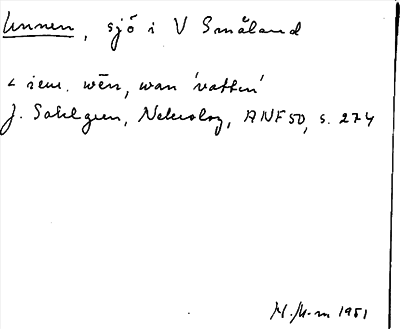 Unnen, sjö i V Småland
< ieur. wēn, wən 'vatten'
J. Sahlgren, Nekrolog, ANF 50, s. 274
M. M-m 1951